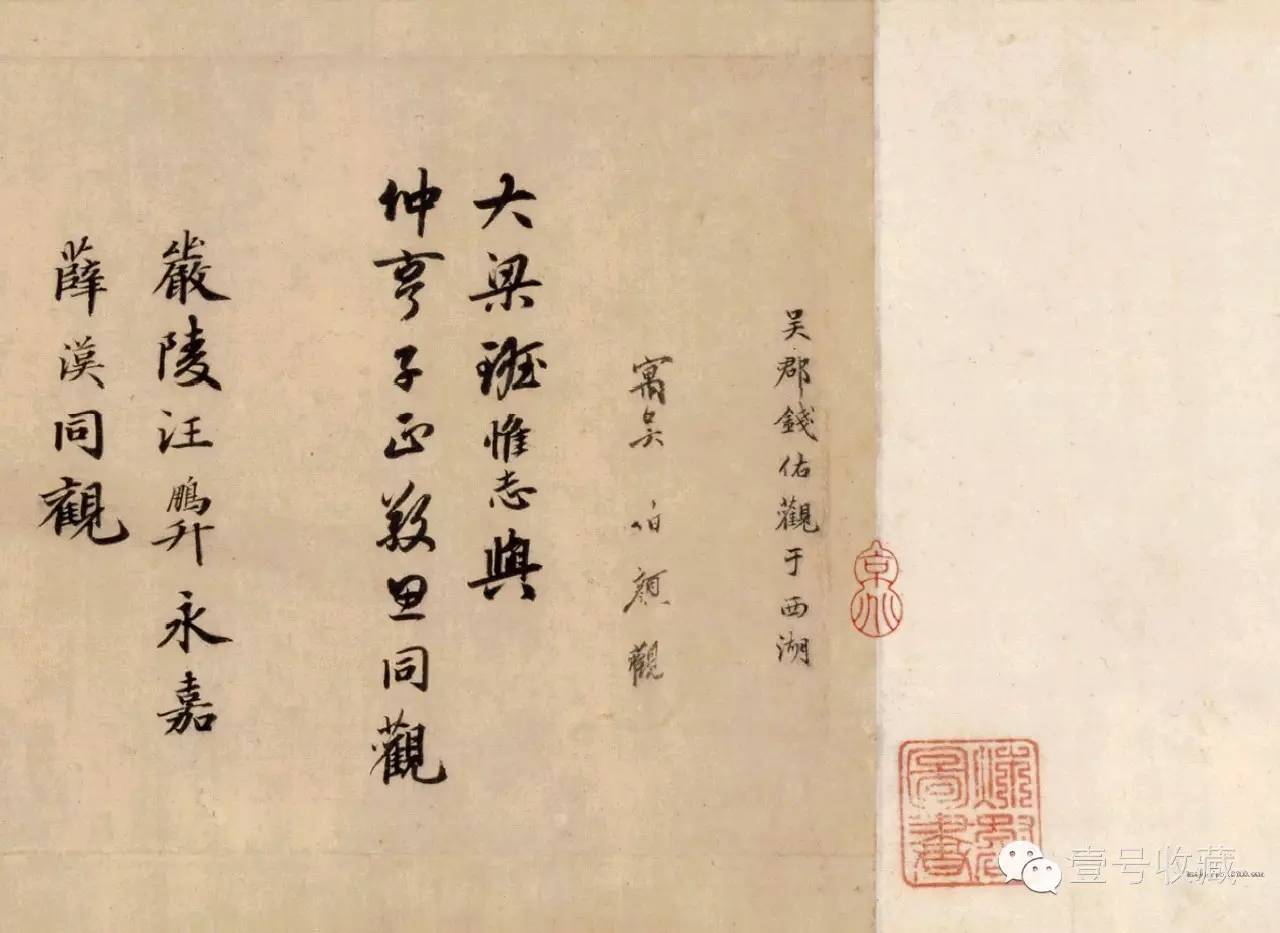 吳郡錢佑觀于西湖
寓吳 伯顏觀
大梁班惟志與
仲亨子正敬思同觀
嚴陵汪鵬升永嘉
薛漢同觀
京
圖書
壹号收藏